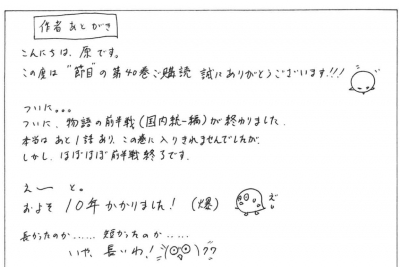 作者あとがき
こんにちは、原です。
この度は“節目”の第40巻ご購読 誠にありがとうございます!!!
ついに。。。
ついに、物語の前半戦(国内統一編)が終わりました。
本当は あと1話あり、この巻に入りきれませんでしたが、
しかし、ほぼほぼ前半戦終了です。
えー と。
およそ 10年かかりました! (爆)
長かったのか…… 短かったのか……
いや、長いわ!